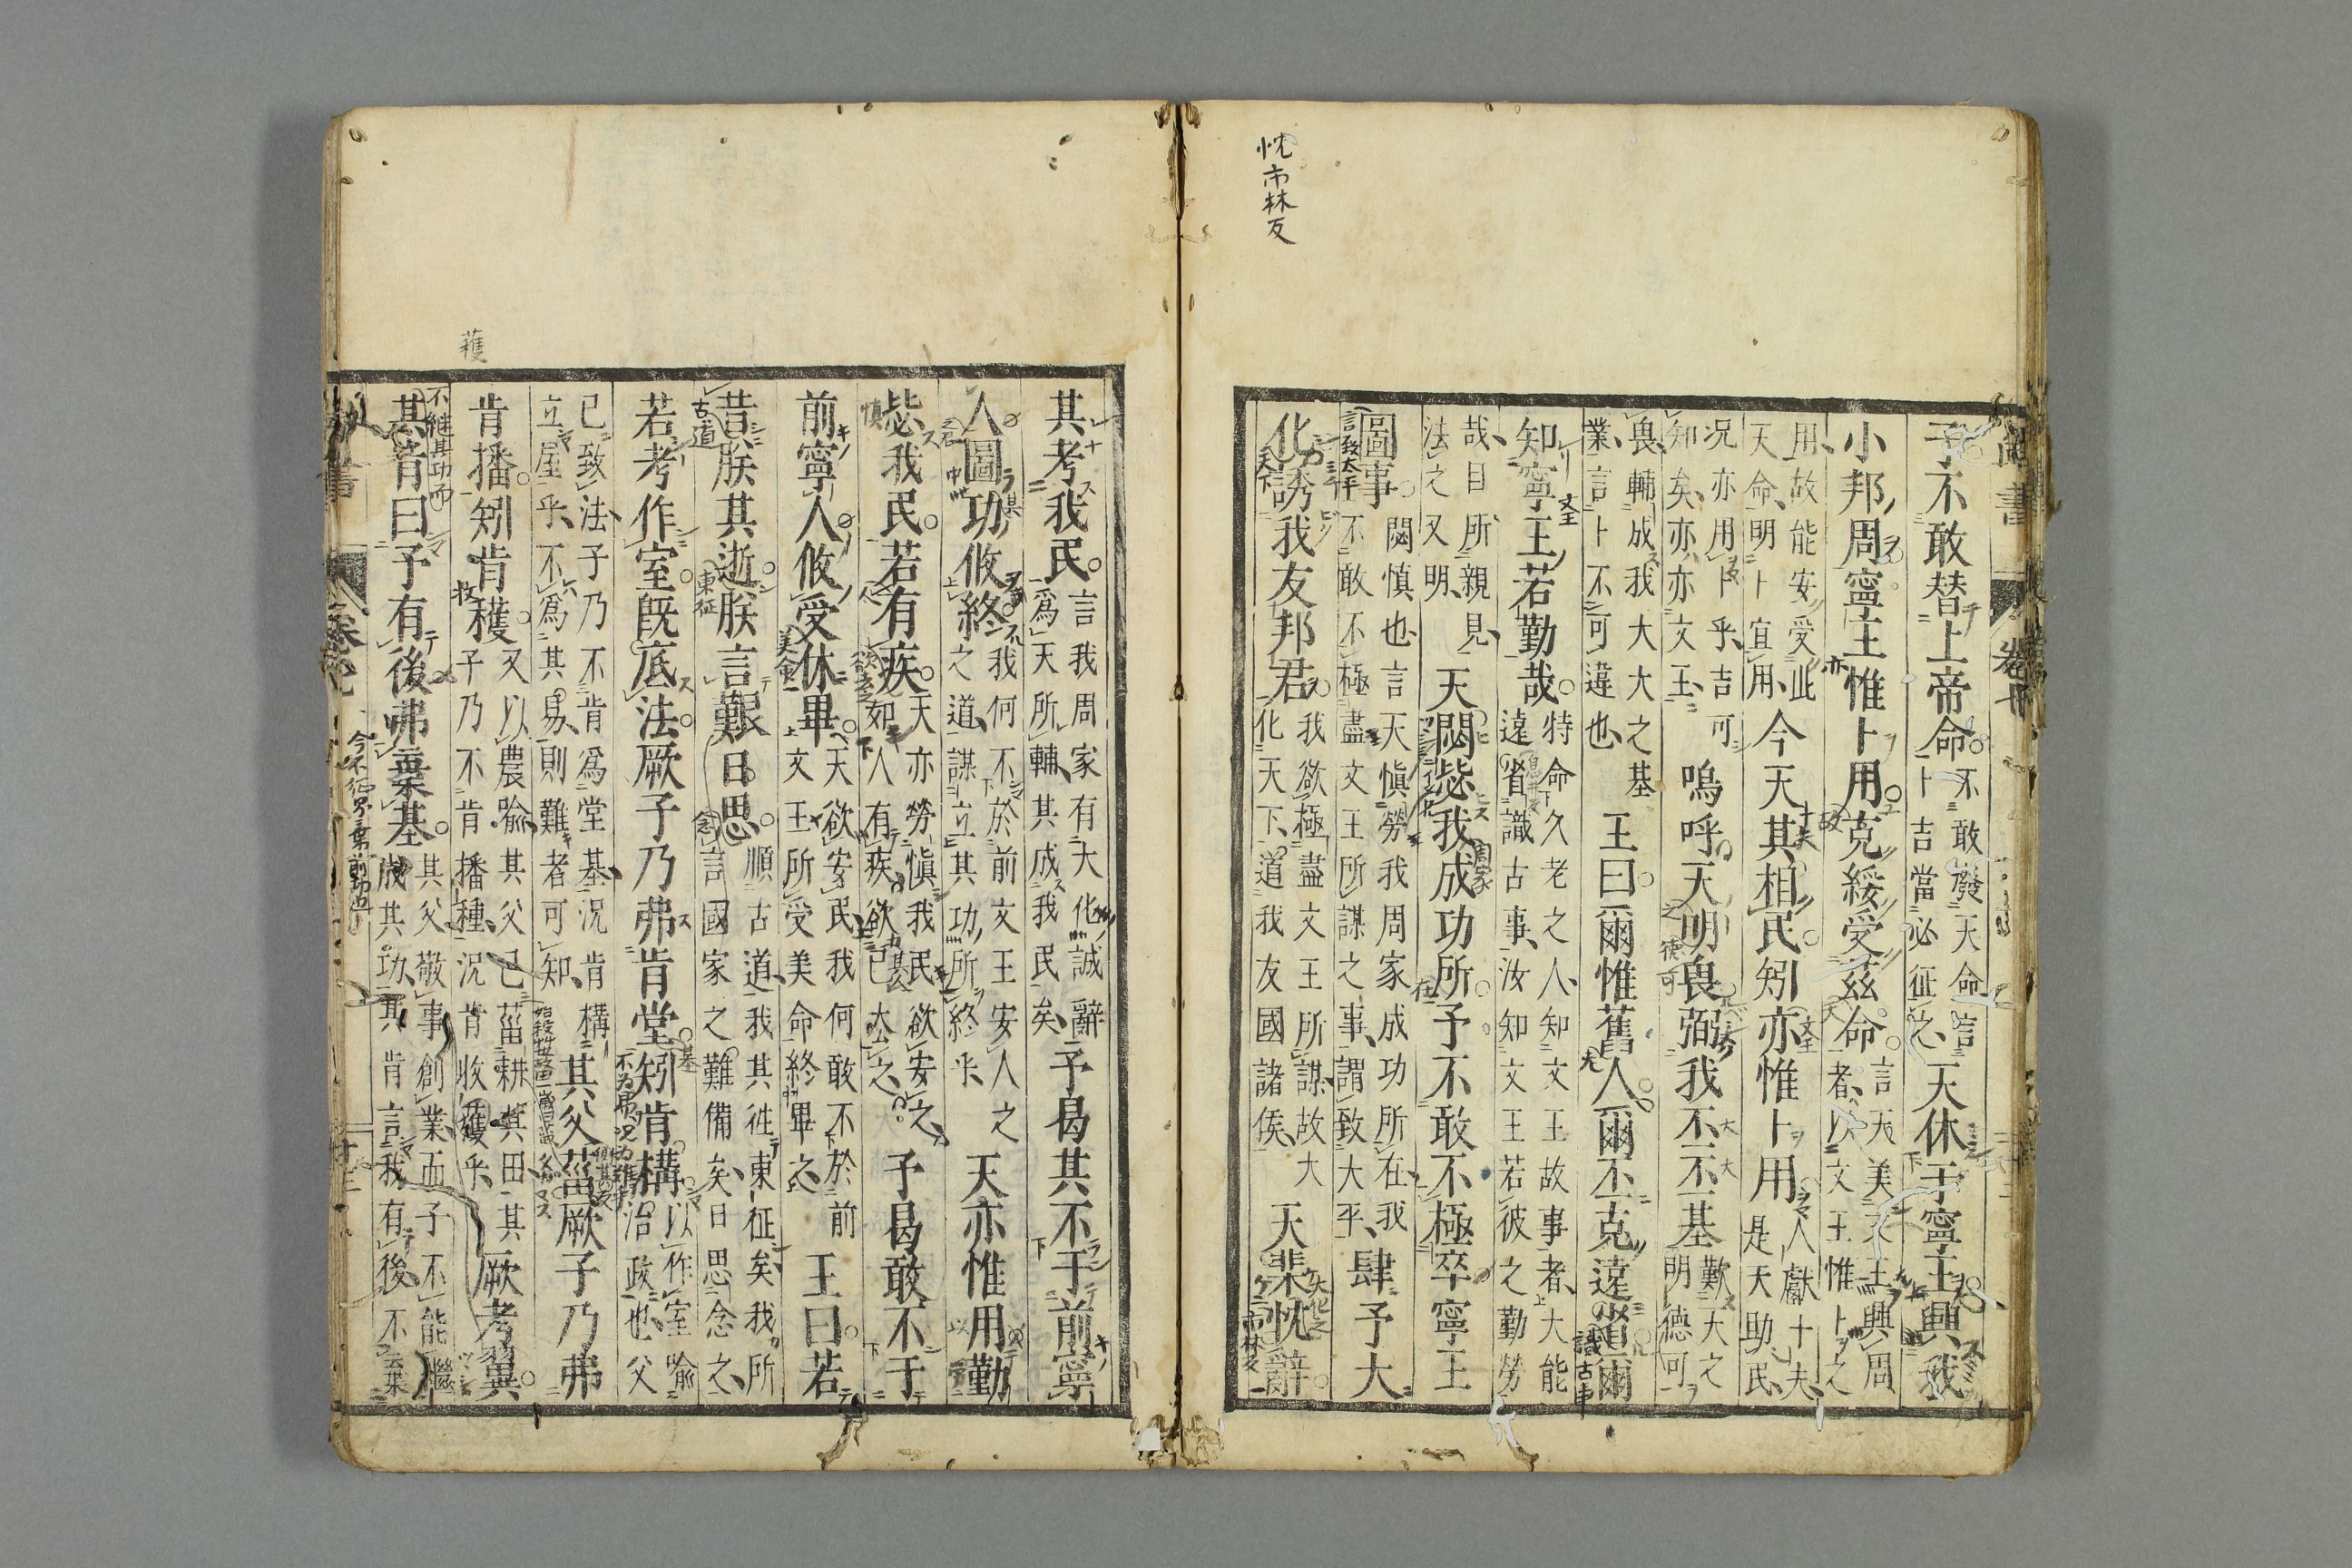 忱市林反
子不敢替上帝命不敢廢天命言卜吉當必征之天休于寧王興我
小邦周寧王惟卜用克綏受茲命言天美文王興周者以文王惟卜之
用故能安受此天命明卜宜用今天其相民矧亦惟卜用人獻十夫是天助民
況亦用卜乎吉可知矣亦亦文王嗚呼天明畏弼我丕丕基歎天之明德可
畏輔成我大大之基業言卜不可違也王曰爾惟舊人爾丕克遠省爾
知寧王若勤哉特命久老之人知文王故事者大能遠省識古事汝知文王若彼之勤勞
哉目所親見法之又明天閟毖我成功所予不敢不極卒寧王
圖事閟慎也言天慎勞我周家成功所在我不敢不極盡文王所謀之事謂致大平肆予大
化誘我友邦君我欲極盡文王所謀故大化天下道我友國諸侯天棐忱辭
其考我民言我周家有大化誠辭爲天所輔其成我民矣予曷其不于前寧
人圖功攸終我何不於前文王安人之道謀立其功所終乎天亦惟用勤
毖我民若有疾天亦勞慎我民欲安之如人有疾欲已去之予曷敢不于
前寧人攸受休畢天欲安民我何敢不於前文王所受美命終畢之王曰若
昔朕其逝朕言艱日思順古道我其往東征矣我所言國家之難備矣日思念之
若考作室既底法厥子乃弗肯堂矧肯構以作室喻治政也父
已致法子乃不肯爲堂基況肯構立屋乎不爲其易則難者可知其父菑厥子乃弗
肯播矧肯穫又以農喻其父已菑耕其田其子乃不肯播種況肯收穫乎厥考翼
其肯曰予有後弗棄基其父敬事創業而子不能繼成其功其肯言我有後不棄
穫